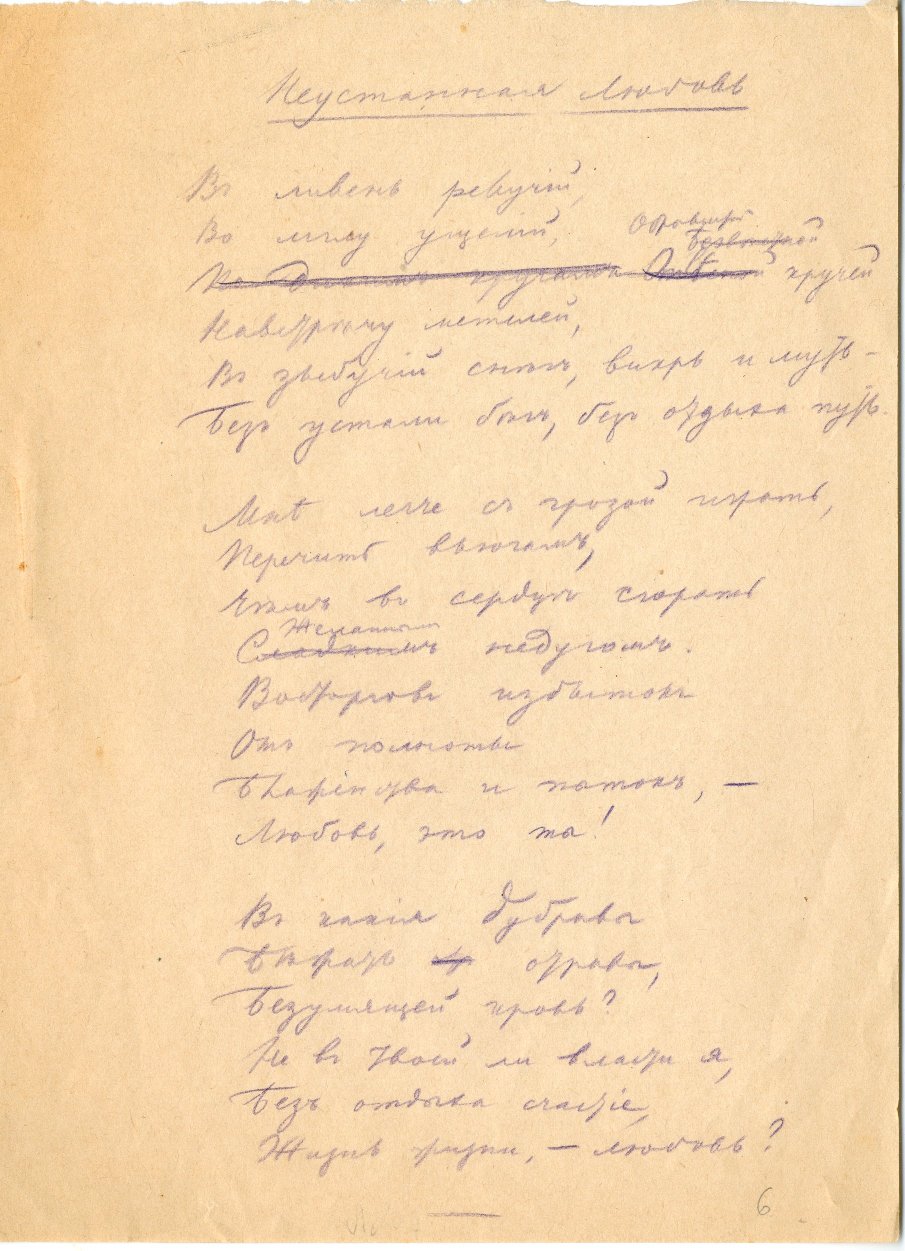 Неустанная любовь
Въ ливень ревучій,
Во мглу ущелій,
Обровшей
кручей
Навстрѣчу метелей,
Въ зыбучій снѣгъ, вихрь и муть –
Безъ устали бѣгъ, безъ отдыха путь.
Мнѣ легче съ грозой играть,
Перечить вьюгамъ,
Чѣмъ въ сердцѣ сгорать
Желаннымъ
Сладкимъ недугомъ.
Восторговъ избытокъ
Отъ полноты
Блаженства и пытокъ, –
Любовь, это ты!
Въ какія дубравы
Бѣжать отравы,
Безумящей кровь?
Не въ твоей ли власти я,
Безъ отдыха счастіе,
Жизнь жизни, – любовь?
6